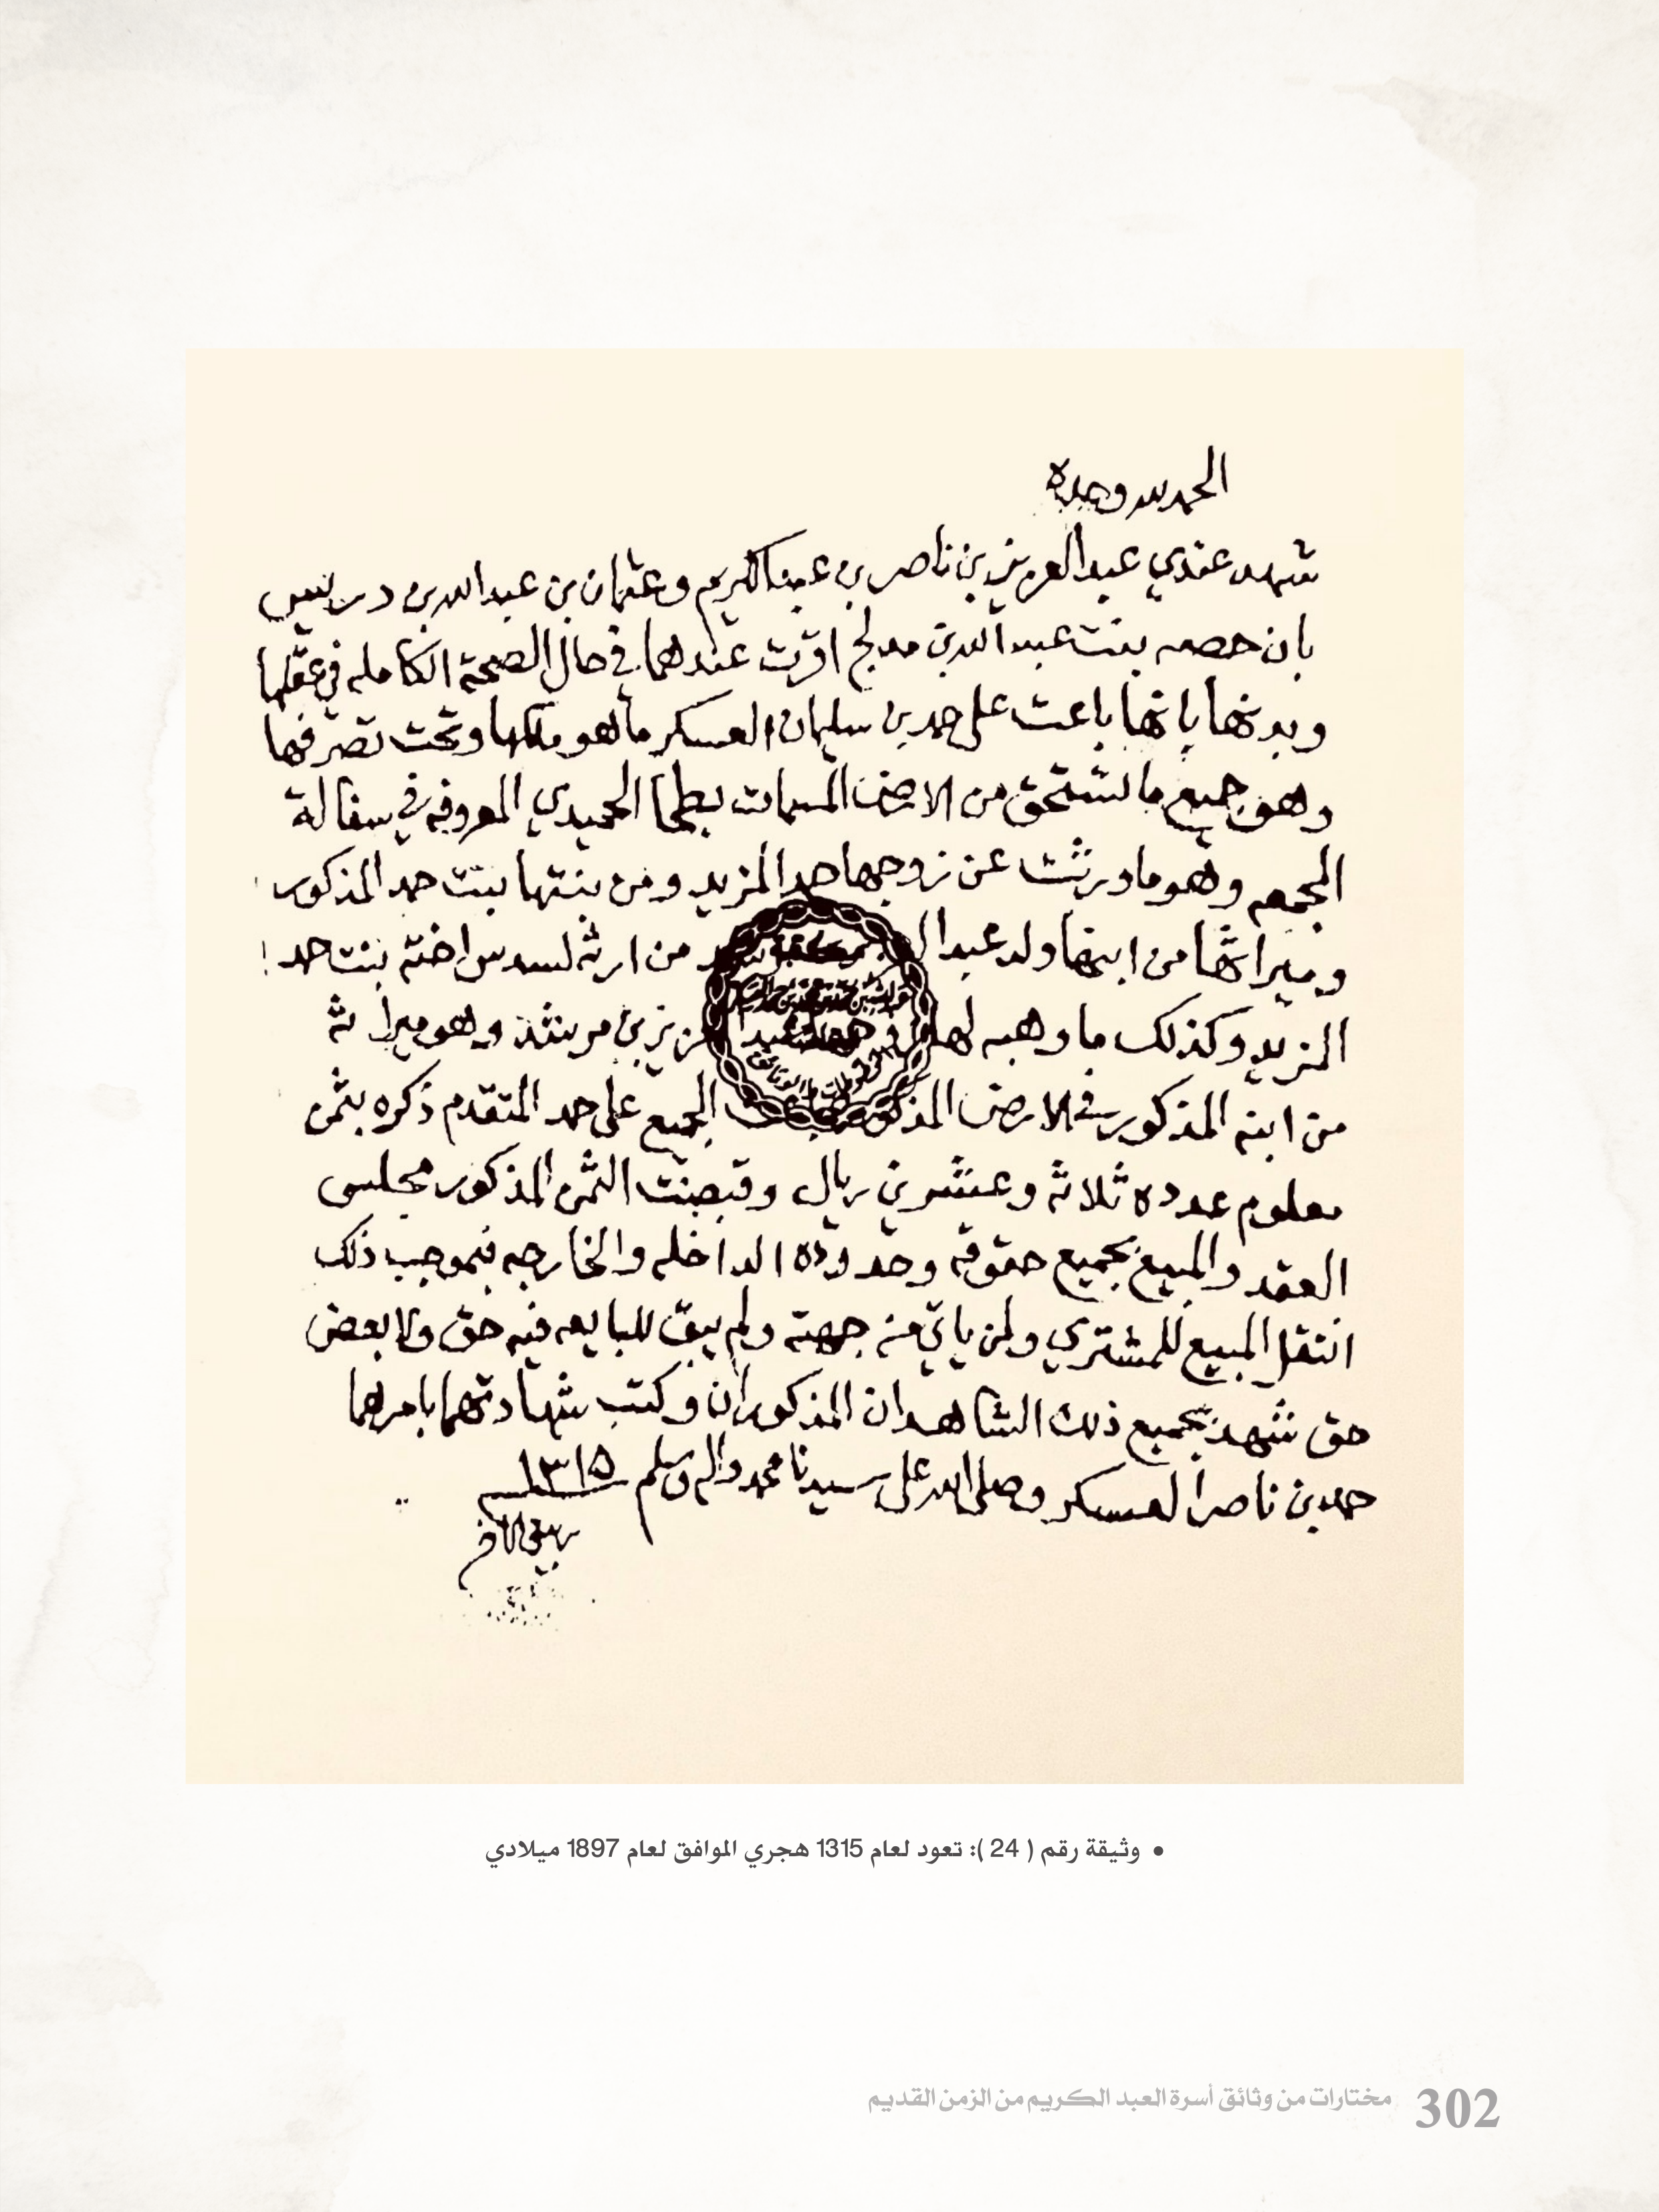 الحمد لله وحده
شهد عندي عبدالعزيز بن ناصر بن عبدالكريم وعثمان بن عبدالله بن دريس
بان حصه بنت عبدالله بن مدلج اقرت عندهما في حال الصحة الكامله في عقلها
وبدنها بانها باعت على حمد بن سليمان العسكر ما هو ملكها وتحت تصرفها
وهو جميع ما تستحق من الارض المسمات بطحا الحميدي المعروفه في سفالة
المجمعه وهو ما ورثت عن زوجها حمد المزيد ومن بنتها بنت حمد المذكور
وميراثها من ابنها ولد عبدا من ارثه لسدس اخته بنت حمد
المزيد وكذلك ما وهبه لها عزيز بن مرشد وهو ميراثه
من ابنه المذكور في الارض المذكوره الجميع على حمد المتقدم ذكره بثمن
معلوم عدده ثلاثه وعشرين ريال وقبضت الثمن المذكور مجلس
العقد والمبيع بجميع حقوقه وحدوده الداخله والخارجه فبموجب ذلك
انتقل المبيع للمشتري ولمن ياتي من جهته ولم يبق للبايعه فيه حق ولا بعض
حق شهد بجميع ذلك الشاهدان المذكوران وكتب شهادتهما بامرهما
حمد بن ناصر العسكر وصلى الله على سيدنا محمد واله وسلم ١٣١٥
ربيع الاخر
• وثيقة رقم ( 24 ): تعود لعام 1315 هجري الموافق لعام 1897 ميلادي
302 مختارات من وثائق أسرة العبد الكريم من الزمن القديم